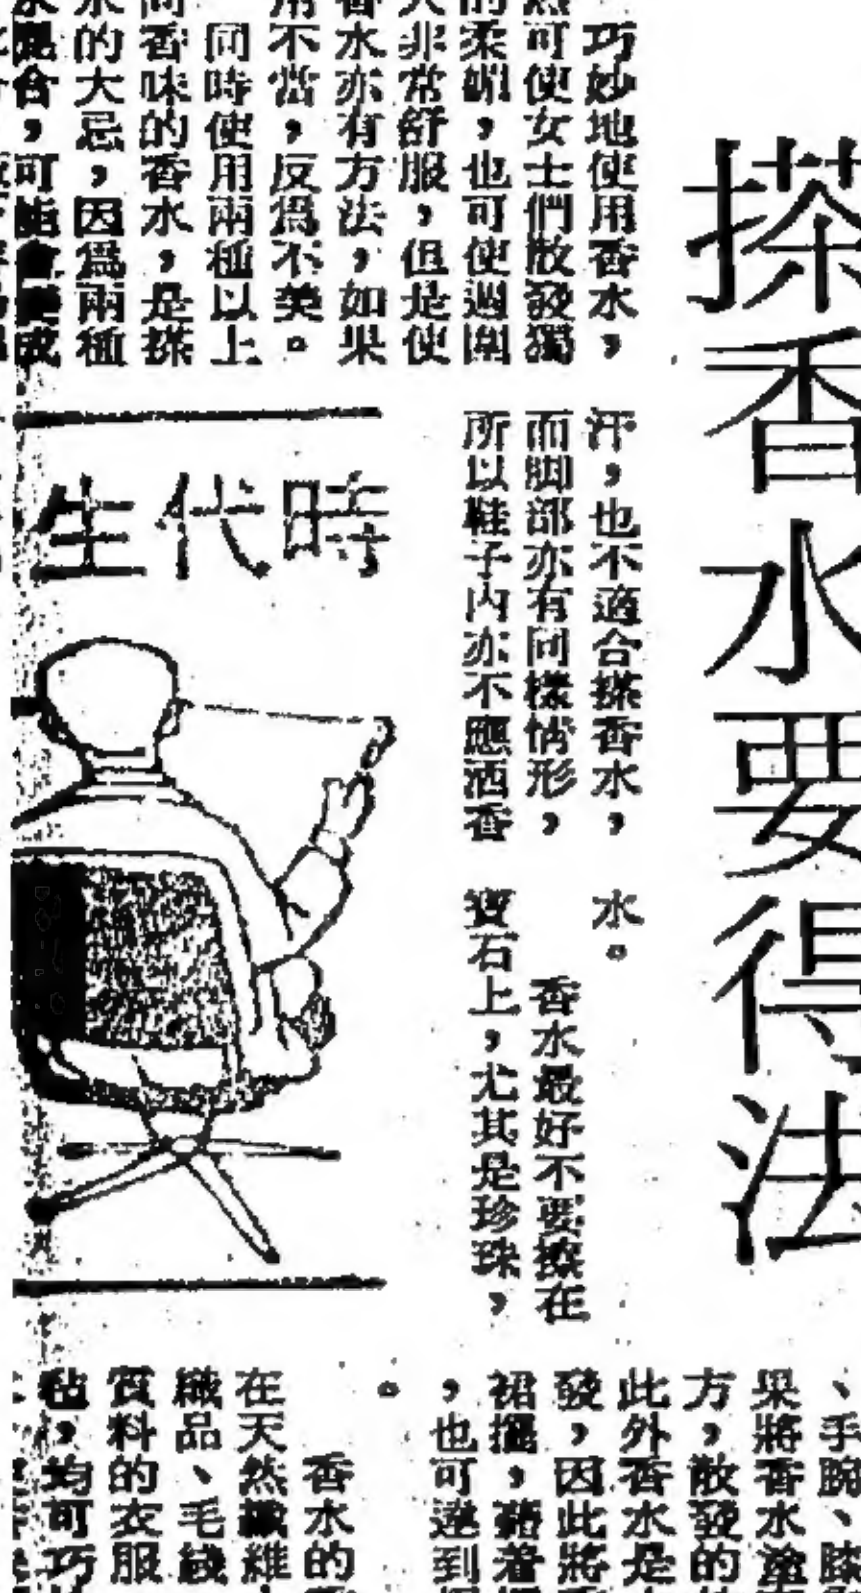 搽香水要得法
巧妙地使用香水，
可使女士們散發獨
的柔媚，也可使週圍
人非常舒服，但是使
香水亦有方法，如果
用不當，反爲不美。
同時使用兩種以上
同香味的香水，是搽
水的大忌，因爲兩種
水混合，可能會變成
汗，也不適合搽香水，
而脚部亦有同樣情形，
所以鞋子內亦不應洒香
水。
香水最好不要搽在
寶石上，尤其是珍珠，
時代生
、手腕、膝
果將香水塗
方，散發的
此外香水是
發，因此將
裙擺，藉着
，也可達到
。
香水的
在天然纖維
織品、毛絨
質料的衣服
，均可巧